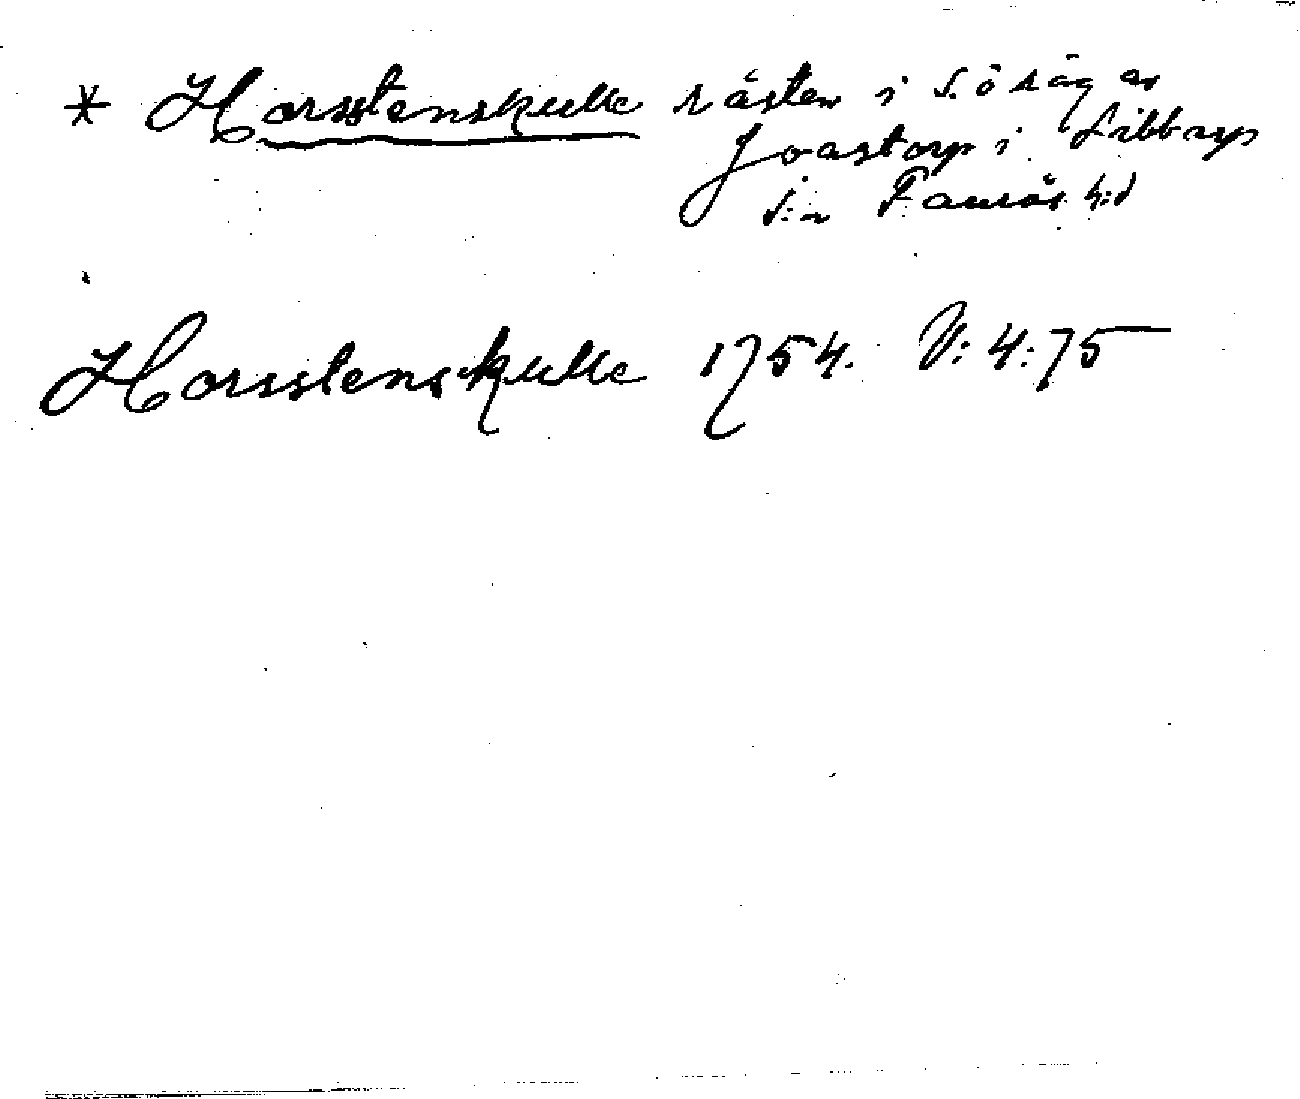 * Horsstenskulle råsten i S.ö råg av
Joastorp i Libbarp
s:n Faurås h:d
Horsstenskulle 1754. V: 4:75